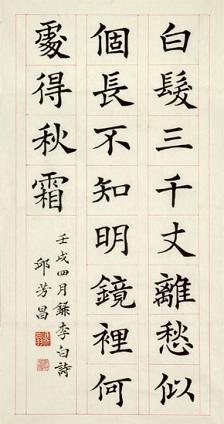 白髮三千丈離愁似
個長不知明鏡裡何
處得秋霜
壬戌四月錄李白詩
邱芳昌